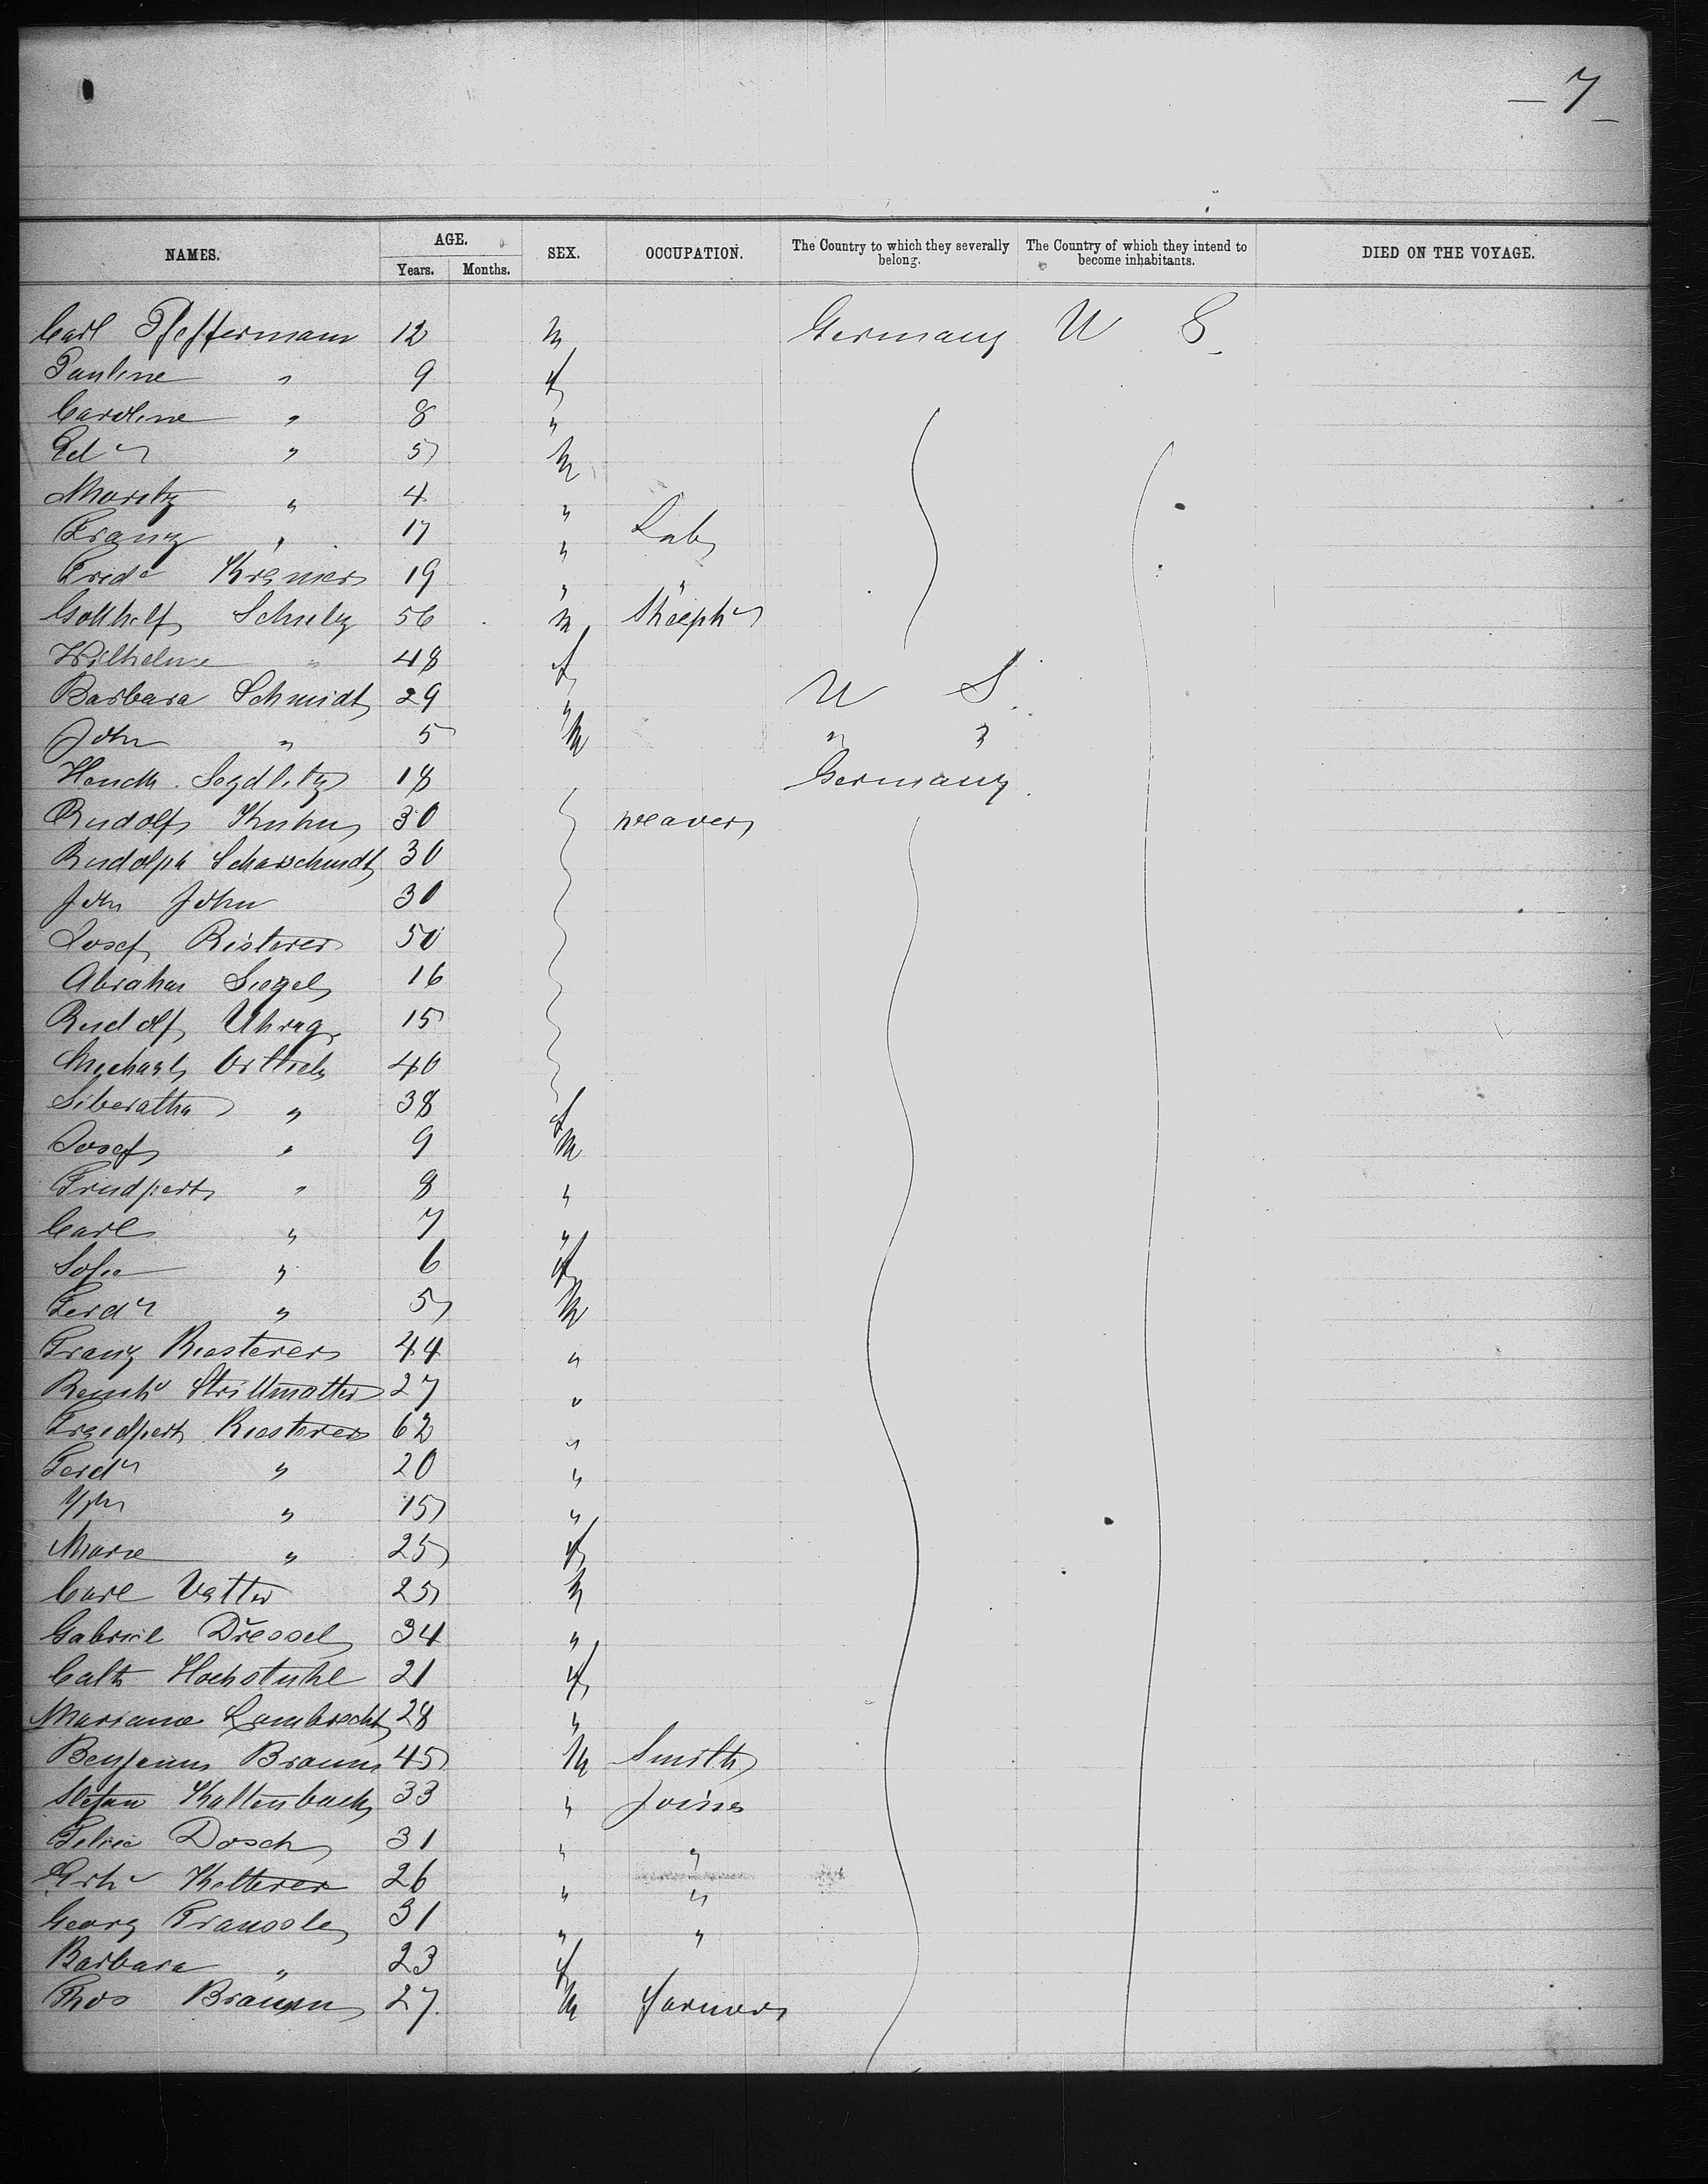 — 7 —
NAMES. AGE. SEX. OCCUPATION. The Country to which they severally belong. The Country of which they intend to become inhabitants. DIED ON THE VOYAGE.
Years. Months.
Carl Pfeffermann 12 m Germany U S
Pauline " 9 f
Caroline " 8 "
Edr " 5 m
Moritz " 4 "
Franz " 17 " Lab
Fride Kramer 19 " "
Gotthelf Schulz 56 m Sheephr
Wilhelme " 48 f
Barbara Schmidt 29 " U S.
John " 5 m " "
Heinch. Seydlitz 18 Germany
Rudolf Kuhn 30 weaver
Rudolph Scharschmidt 30
John John 30
Josef Risterer 50
Abraham Siegel 16
Rudolf Uhrig 15
Michael Ortlieb 40
Liberatha " 38 f
Josef " 9 m
Trudpert " 8 "
Carl " 7 "
Sofie " 6 f
Ferdn " 5 m
Franz Riesterer 44 "
Reinhd Strittmatter 27 "
Trudpert Riesterer 62 "
Ferdn " 20 "
" 15 "
Marie " 25 f
Carl Vetter 25 m
Gabriel Dressel 34 "
Cath Hochstuhl 21 f
Mariane Lambrecht 28 "
Benjamin Braun 45 m Smith
Stefan Kaltenbach 33 " Joiner
Felix Dosch 31 " "
Ketterer 26 " "
Georg 31 " "
Barbara " 23 f
Thos Braun 27. m farmer